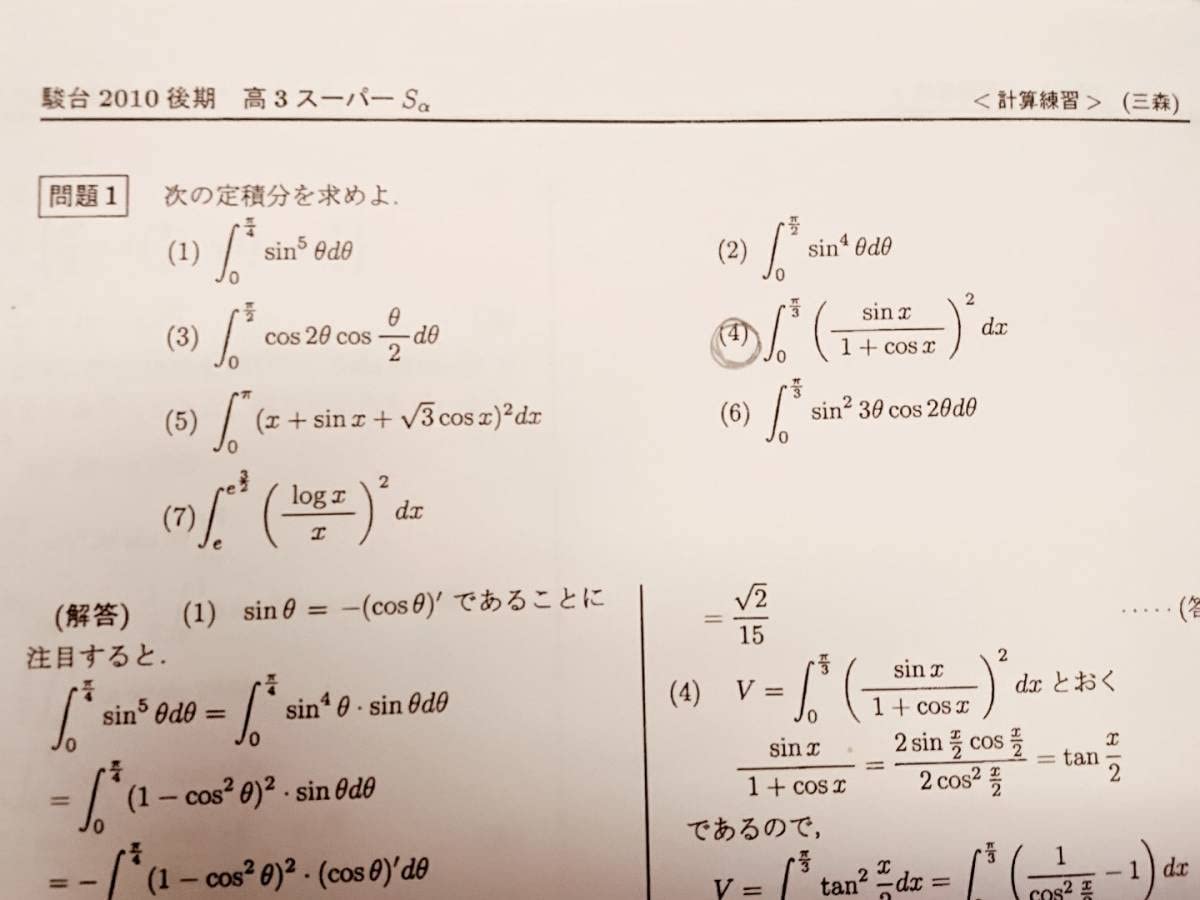 駿台 2010 後期 高3スーパー Sα <計算練習> (三森)
問題1 次の定積分を求めよ.
(1) ∫_0^{π/4} sin⁵ θdθ (2) ∫_0^{π/2} sin⁴ θdθ
(3) ∫_0^{π/2} cos 2θ cos θ/2 dθ (4) ∫_0^{π/3} (sin x / (1 + cos x))² dx
(5) ∫_0^π (x + sin x + √3 cos x)² dx (6) ∫_0^{π/3} sin² 3θ cos 2θdθ
(7) ∫_e^{e^{3/2}} (log x / x)² dx
(解答) (1) sin θ = −(cos θ)′ であることに
注目すると.
∫_0^{π/4} sin⁵ θdθ = ∫_0^{π/4} sin⁴ θ · sin θdθ
= ∫_0^{π/4} (1 − cos² θ)² · sin θdθ
= −∫^{π/4} (1 − cos² θ)² · (cos θ)′dθ
= √2/15 ·····(
(4) V = ∫_0^{π/3} (sin x / (1 + cos x))² dx とおく
sin x / (1 + cos x) = 2 sin x/2 cos x/2 / 2 cos² x/2 = tan x/2
であるので,
V = ∫^{π/3} tan² x/2 dx = ∫^{π/3} (1 / cos² x/2 − 1) dx